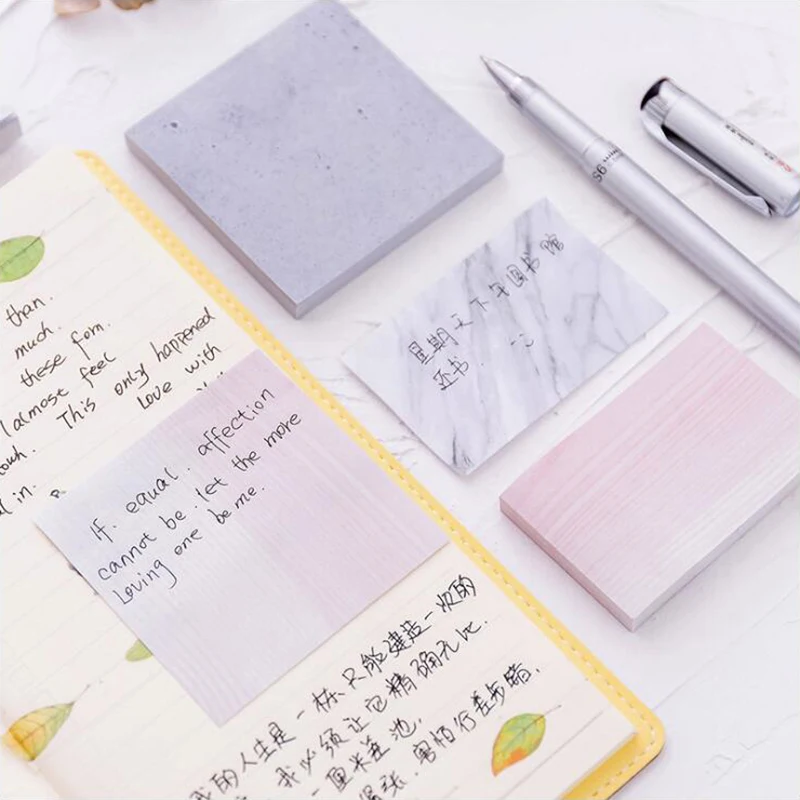 than.
much.
these fom.
I almose feel
This only happened
Love with
If. equal. affection
cannot be. let the more
Loving one be me.
星期天下午图书馆
还书.
我的人生是一栋只能建造一次的
我必须让它精确无比.
一厘米差池.
害怕行差步错.
95